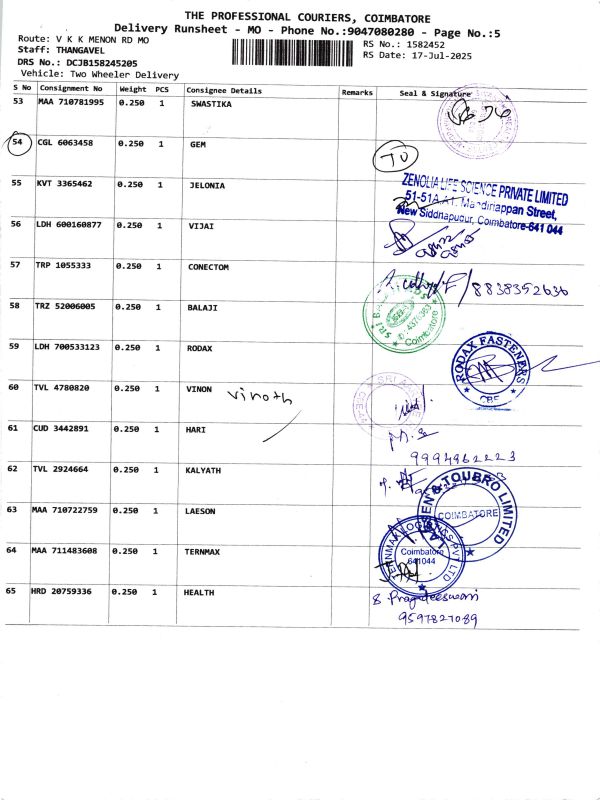 THE PROFESSIONAL COURIERS, COIMBATORE
Delivery Runsheet - MO - Phone No.:9047080280 - Page No.:5
Route: V K K MENON RD MO
RS No.: 1582452
Staff: THANGAVEL
RS Date: 17-Jul-2025
DRS No.: DCJB158245205
Vehicle: Two Wheeler Delivery
S No Consignment No Weight PCS Consignee Details Remarks Seal & Signature
53 MAA 710781995 0.250 1 SWASTIKA
54 CGL 6063458 0.250 1 GEM
55 KVT 3365462 0.250 1 JELONIA
ZENOLIA LIFE SCIENCE PRIVATE LIMITED
51-51A
Street,
New Siddhapudur, Coimbatore-641 044
56 LDH 600160877 0.250 1 VIJAI
57 TRP 1055333 0.250 1 CONECTOM
8838352636
58 TRZ 52006005 0.250 1 BALAJI
SRI
Coimbatore
59 LDH 700533123 0.250 1 RODAX
RODAX FASTENERS
CBE
60 TVL 4780820 0.250 1 VINON
Vinoth
SRI
61 CUD 3442891 0.250 1 HARI
9994962223
62 TVL 2924664 0.250 1 KALYATH
63 MAA 710722759 0.250 1 LAESON
TOUBRO LIMITED
COIMBATORE
64 MAA 711483608 0.250 1 TERNMAX
TERNMAX LOGISTICS PVT LTD
Coimbatore
641044
65 HRD 20759336 0.250 1 HEALTH
9597827089